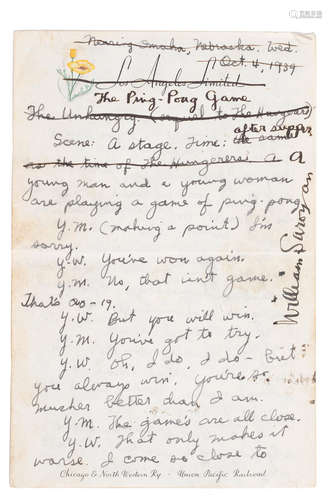 Nearing Omaha, Nebraska. Wed.
Oct. 4, 1939
Los Angeles Limited
The Ping-Pong Game
The Unhungry (sequel to The Hungerers)
Scene: A stage. Time: the same after supper
as the time of The Hungerers. A A
young man and a young woman
are playing a game of ping-pong
Y.M. (making a point) I'm
sorry.
Y.W. You've won again.
Y.M. No, that isn't game.
That's 20-19.
Y.W. But you will win.
Y.M. You've got to try.
Y.W. Oh, I do, I do- but
you always win. You're so
much better than I am.
Y.M. The games are all close.
Y.W. That only makes it
worse. I come so close to
William Saroyan
Chicago & North Western Ry. - Union Pacific Railroad